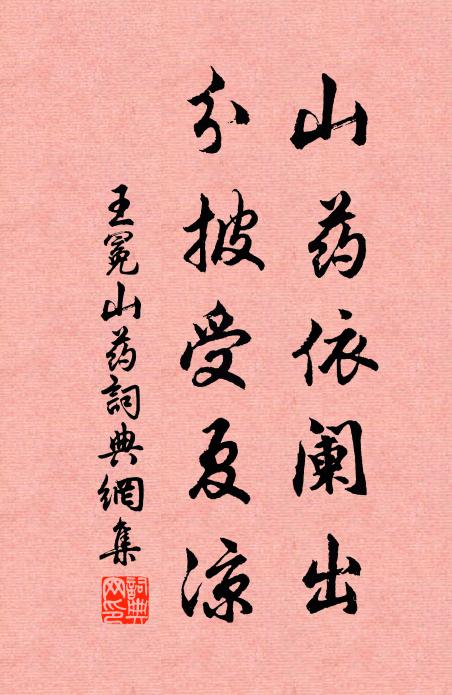 山药依阑出
分披受夏凉
王冕山药詞典網集
詞典网印